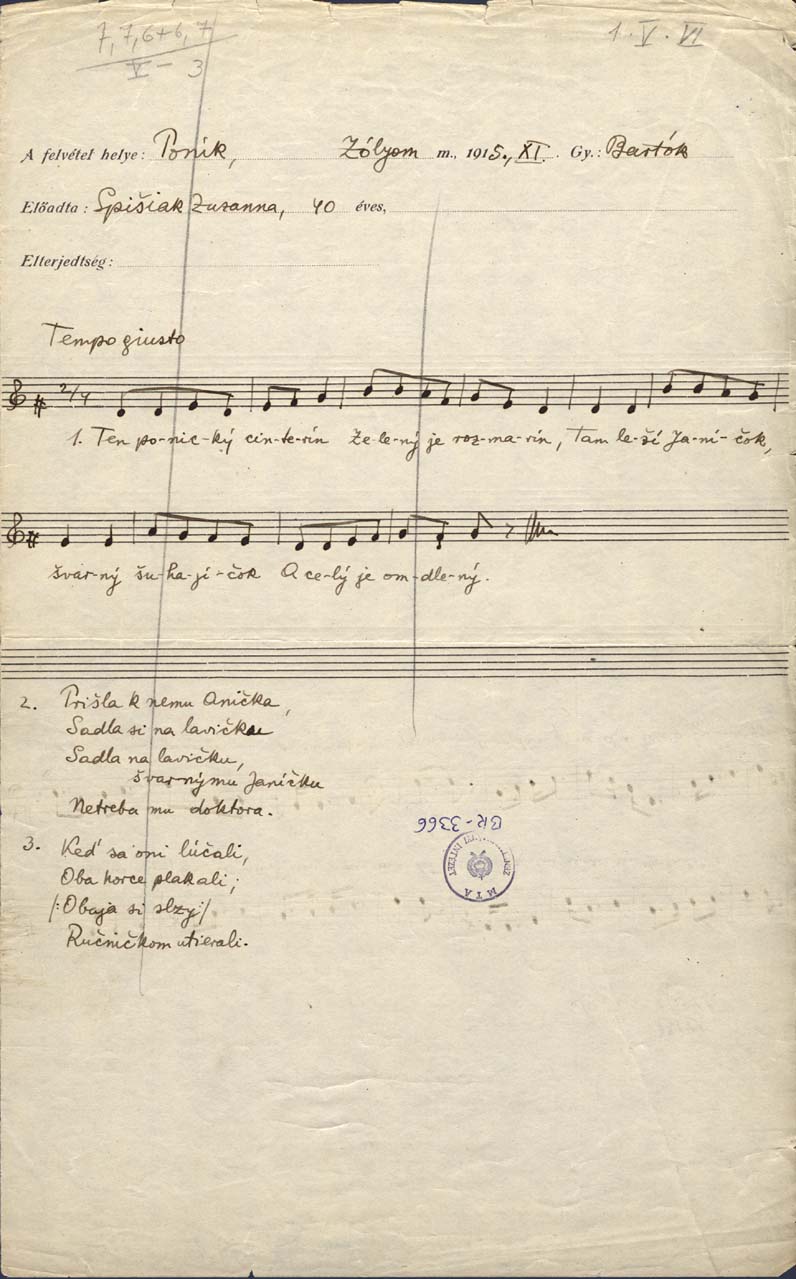 7, 7, 6+6, 7
V – 3
1. V. VI
A felvétel helye: Ponik, Zólyom m., 1915., XI. Gy.: Bartók
Előadta: Spišiak Zuzanna, 40 éves,
Elterjedtség:
Tempo giusto
2/4
1. Ten po-nic-ký cin-te-rín Ze-le-ný je roz-ma-rín, Tam le-ží Ja-ní-čok,
švar-ný šu-ha-jí-čok A ce-lý je om-dle-ný.
2. Prišla k nemu Anička,
Sadla si na lavičku
Sadla na lavičku,
švarnýmu Janíčku
Netreba mu doktora.
3. Keď sa oni lúčali,
Oba horce plakali;
/:Obaja si slzy:/
Ručníčkom utierali.
BR-3366
MTA